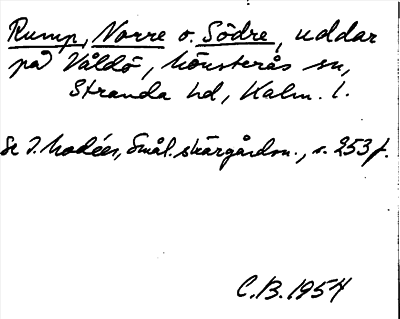 Rump, Norre o. Södre, uddar
på Våldö, Mönsterås sn,
Stranda hd, Kalm. l.
Se J. Modéer, Smål. skärgårdsn., s. 253 f.
C.B. 1954